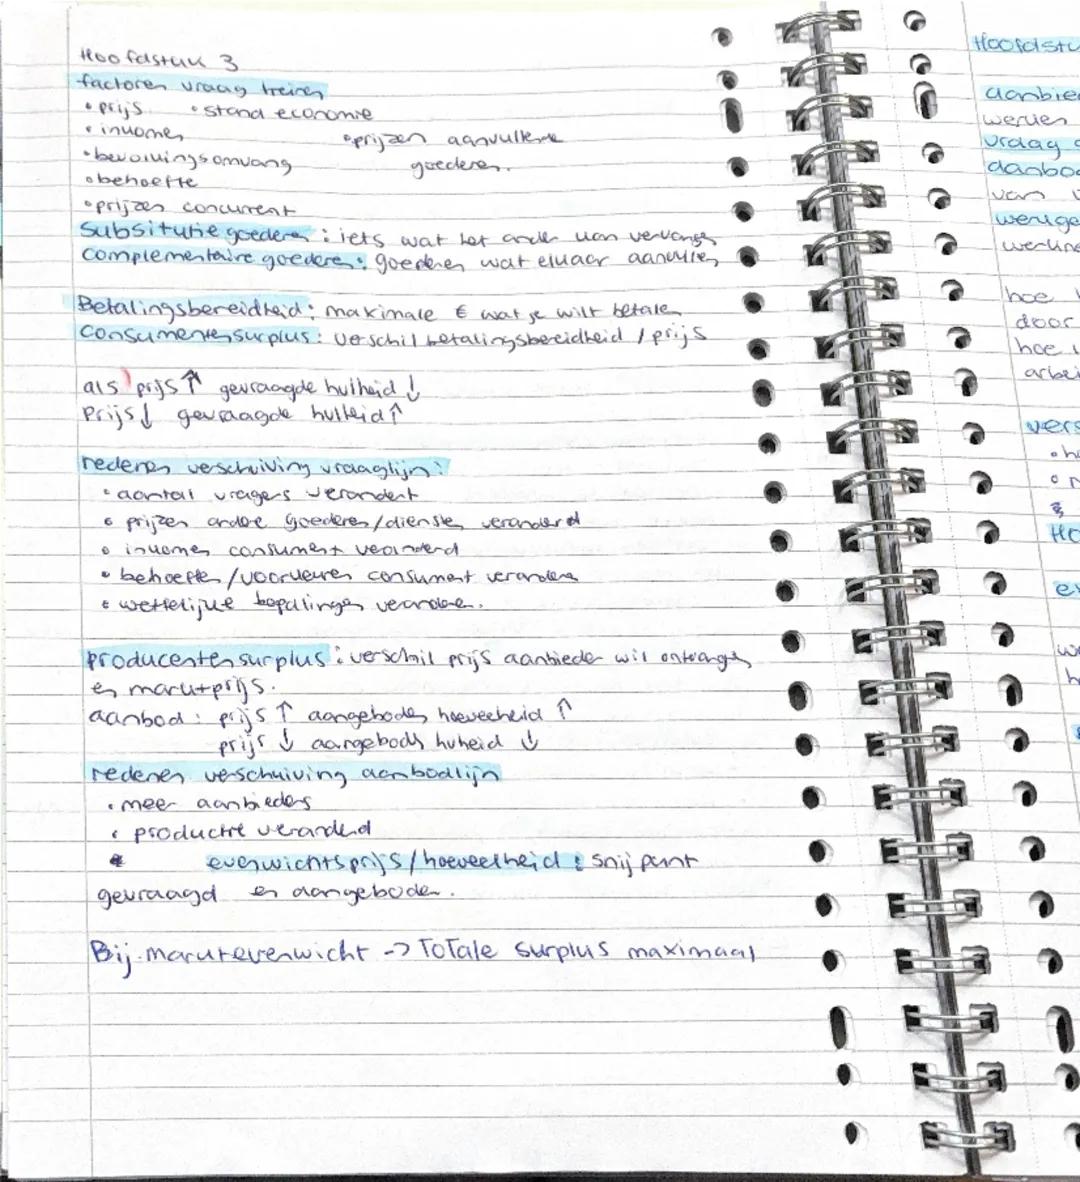 Hoofdstuk 3
factoren vraag
• prijs • stand economie
• inkomen • prijzen aanvullene
• bevolkingsomvang goederen.
• behoefte
• prijzen concurrent
Subsitutie goederen : iets wat het ander kan vervangen
Complementaire goederen : goederen wat elkaar aanvullen
Betalingsbereidheid : maximale € wat je wilt betalen
Consumentensurplus : verschil betalingsbereidheid / prijs
als prijs ↑ gevraagde hv!heid ↓
Prijs ↓ gevraagde hvlheid ↑
redenen verschuiving vraaglijn :
• aantal vragers verandert
• prijzen andere goederen/diensten veranderd
• inkomen consument veranderd
• behoeften/voorkeuren consument veranderen
• wettelijke bepalingen veranderen.
producentensurplus : verschil prijs aanbieder wil ontvangen
en marktprijs.
aanbod : prijs ↑ aangeboden hoeveelheid ↑
prijs ↓ aangeboden hvheid ↓
redenen verschuiving aanbodlijn
• meer aanbieders
• productie veranderd
• evenwichtsprijs/hoeveelheid : snijpunt
gevraagd en aangeboden.
Bij marktevenwicht -> Totale surplus maximaal
Hoofdstu
aanbie
werken
vraag
aanbod
van
werkge
werkne
hoe
door
hoe
arbei
vers
Ho